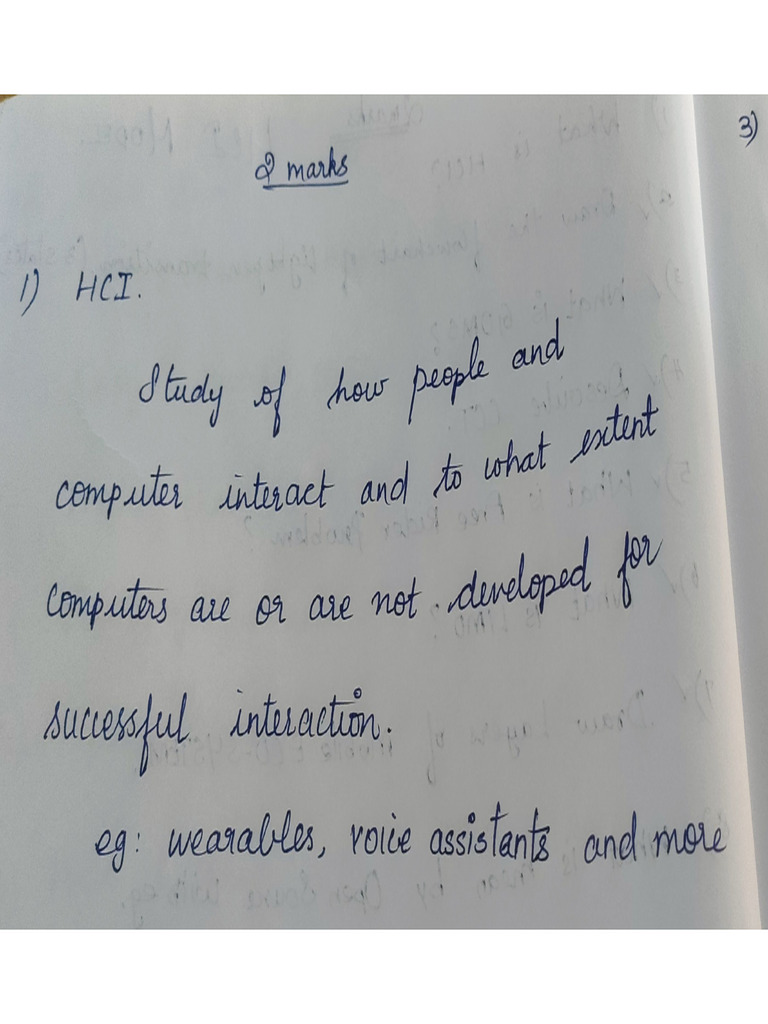 2 marks
3)
1) HCI.
Study of how people and
computer interact and to what extent
computers are or are not developed for
successful interaction.
eg: wearables, voice assistants and more